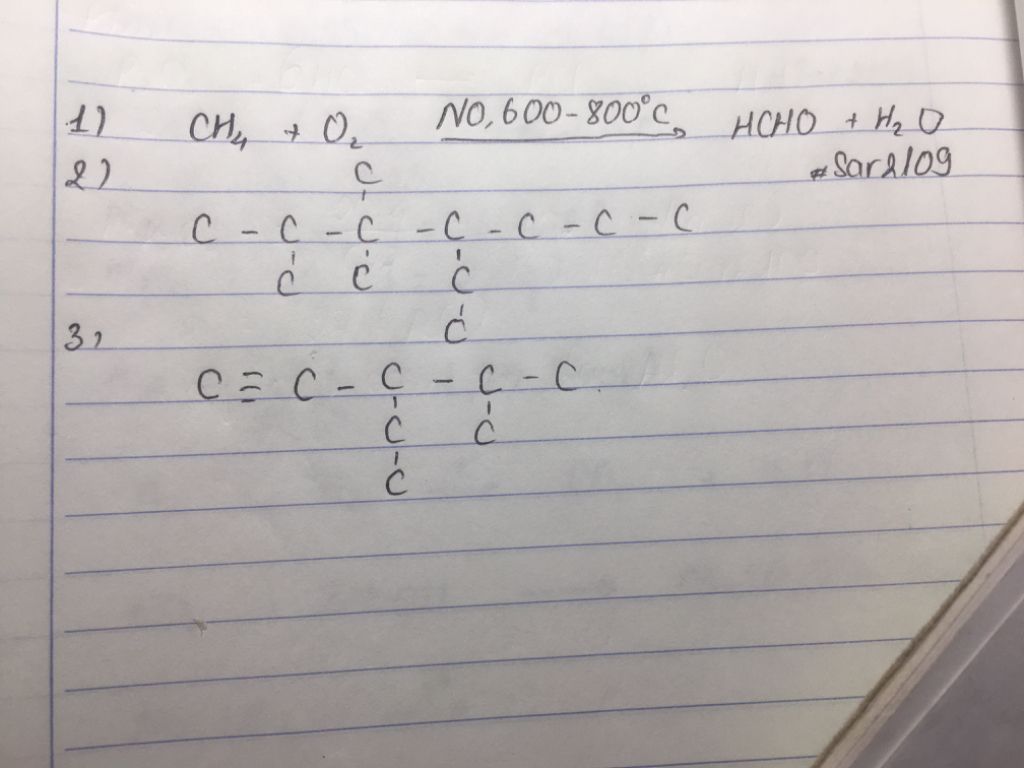 1) CH₄ + O₂ NO, 600-800°C → HCHO + H₂O
2) #Sar2109
C
C - C - C - C - C - C - C
C C C
C
3,
C ≡ C - C - C - C
C C
C